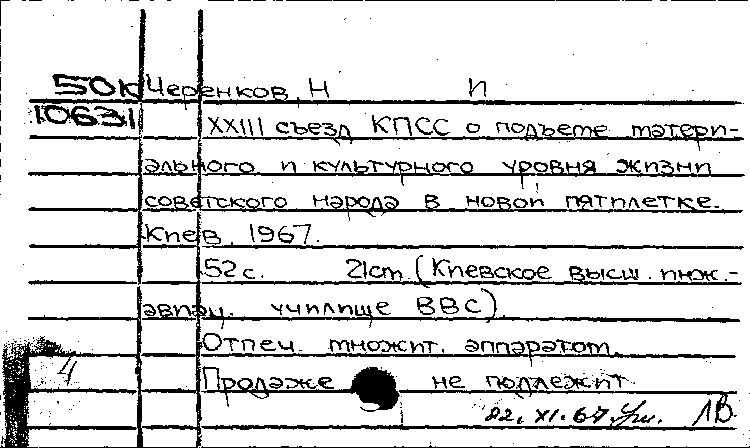 50к Черенков, Н И
10631
XXIII съезд КПСС о подъеме матери-
ального и культурного уровня жизни
советского народа в новой пятилетке.
Киев, 1967.
52 с. 21cm (Киевское высш. инж.-
авиац. училище ВВС).
Отпеч. множит. аппаратом.
4 Продаже не подлежит
22.XI.67. ЛВ.